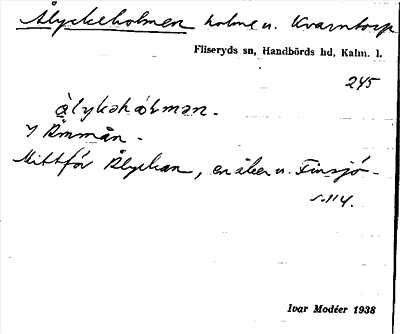 Ålyckeholmen holme u. Kvarntorp
Fliseryds sn, Handbörds hd, Kalm. l.
245
ålykəhålmən.
I Ämmån.
Mittför Ålyckan, en åker u. Finsjö-
s. 114.
Ivar Modéer 1938